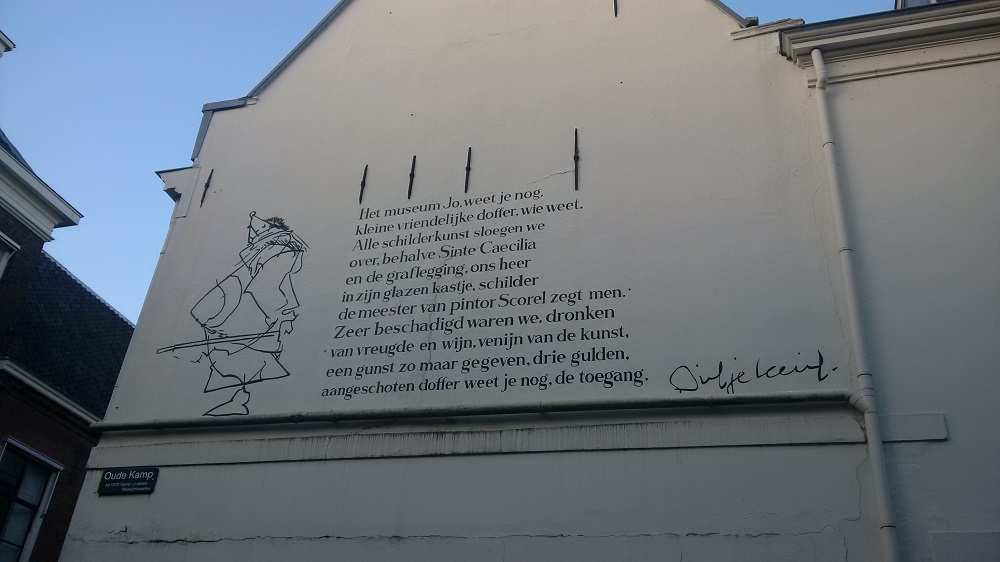 Het museum Jo, weet je nog.
kleine vriendelijke doffer, wie weet.
Alle schilderkunst sloegen we
over, behalve Sinte Caecilia
en de graflegging, ons heer
in zijn glazen kastje, schilder
de meester van pintor Scorel zegt men.
Zeer beschadigd waren we, dronken
van vreugde en wijn, venijn van de kunst,
een gunst zo maar gegeven, drie gulden,
aangeschoten doffer weet je nog, de toegang.
Oude Kamp